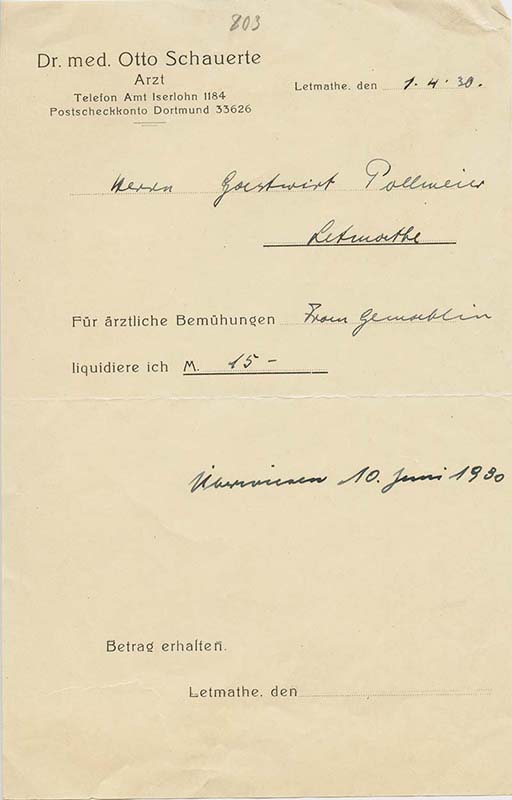 803
Dr. med. Otto Schauerte
Arzt
Telefon Amt Iserlohn 1184
Postscheckkonto Dortmund 33626
Letmathe, den 1.4.30.
Herrn Gastwirt Pollmeier
Letmathe
Für ärztliche Bemühungen Frau Gemahlin
liquidiere ich M. 15 -
Überwiesen 10. Juni 1930
Betrag erhalten.
Letmathe, den